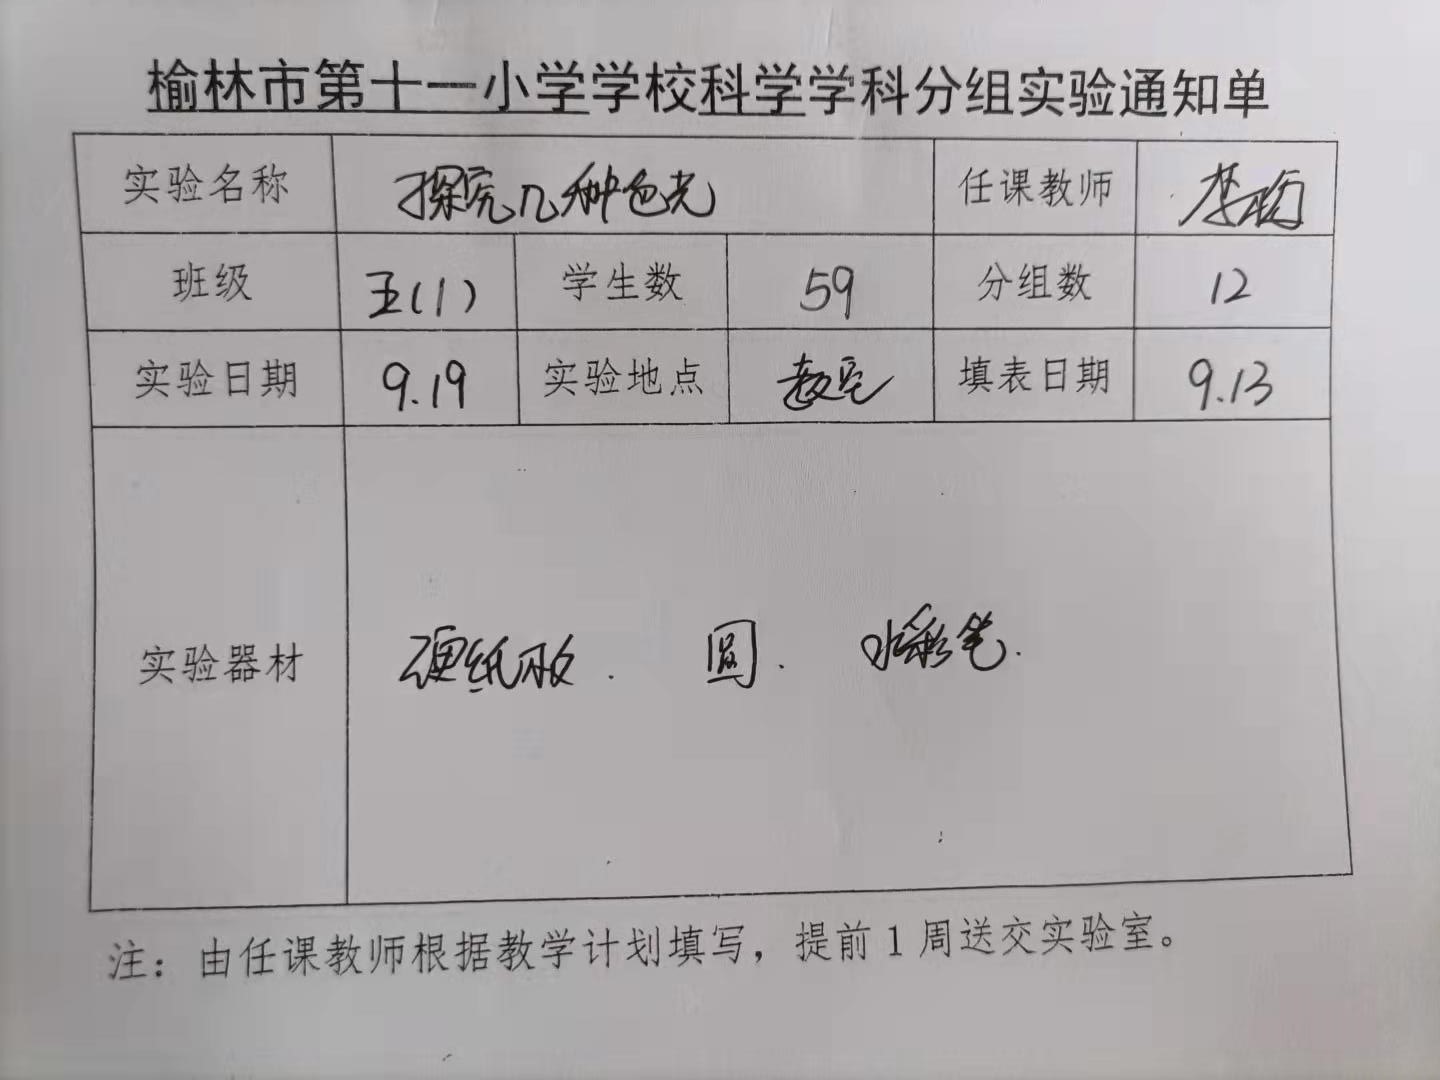 榆林市第十一小学学校科学学科分组实验通知单
实验名称 探究几种色光 任课教师 李
班级 五(1) 学生数 59 分组数 12
实验日期 9.19 实验地点 教室 填表日期 9.13
实验器材 硬纸板. 圆. 水彩笔.
注：由任课教师根据教学计划填写，提前1周送交实验室。